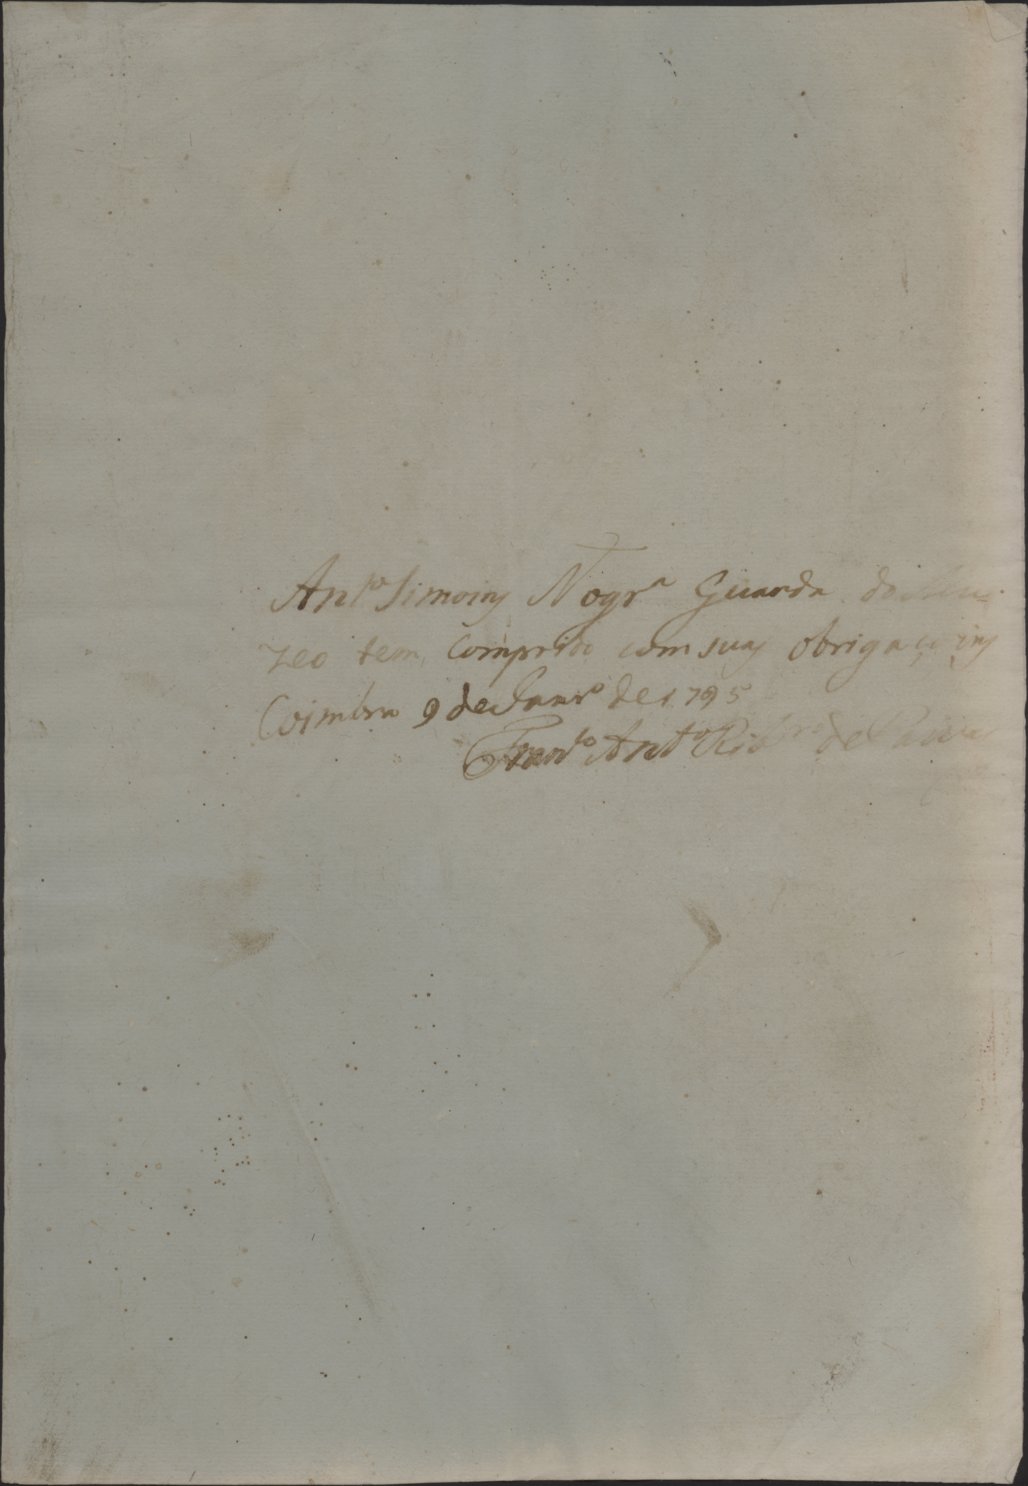 Ant.o Simoiṅs Nogr.a Guarda do Mu=
zeo tem Comprido com suas obrigacoins
Coimbra 9 de Janr.o de 1795
Fran.co Ant.o Rib.ro de Paiva